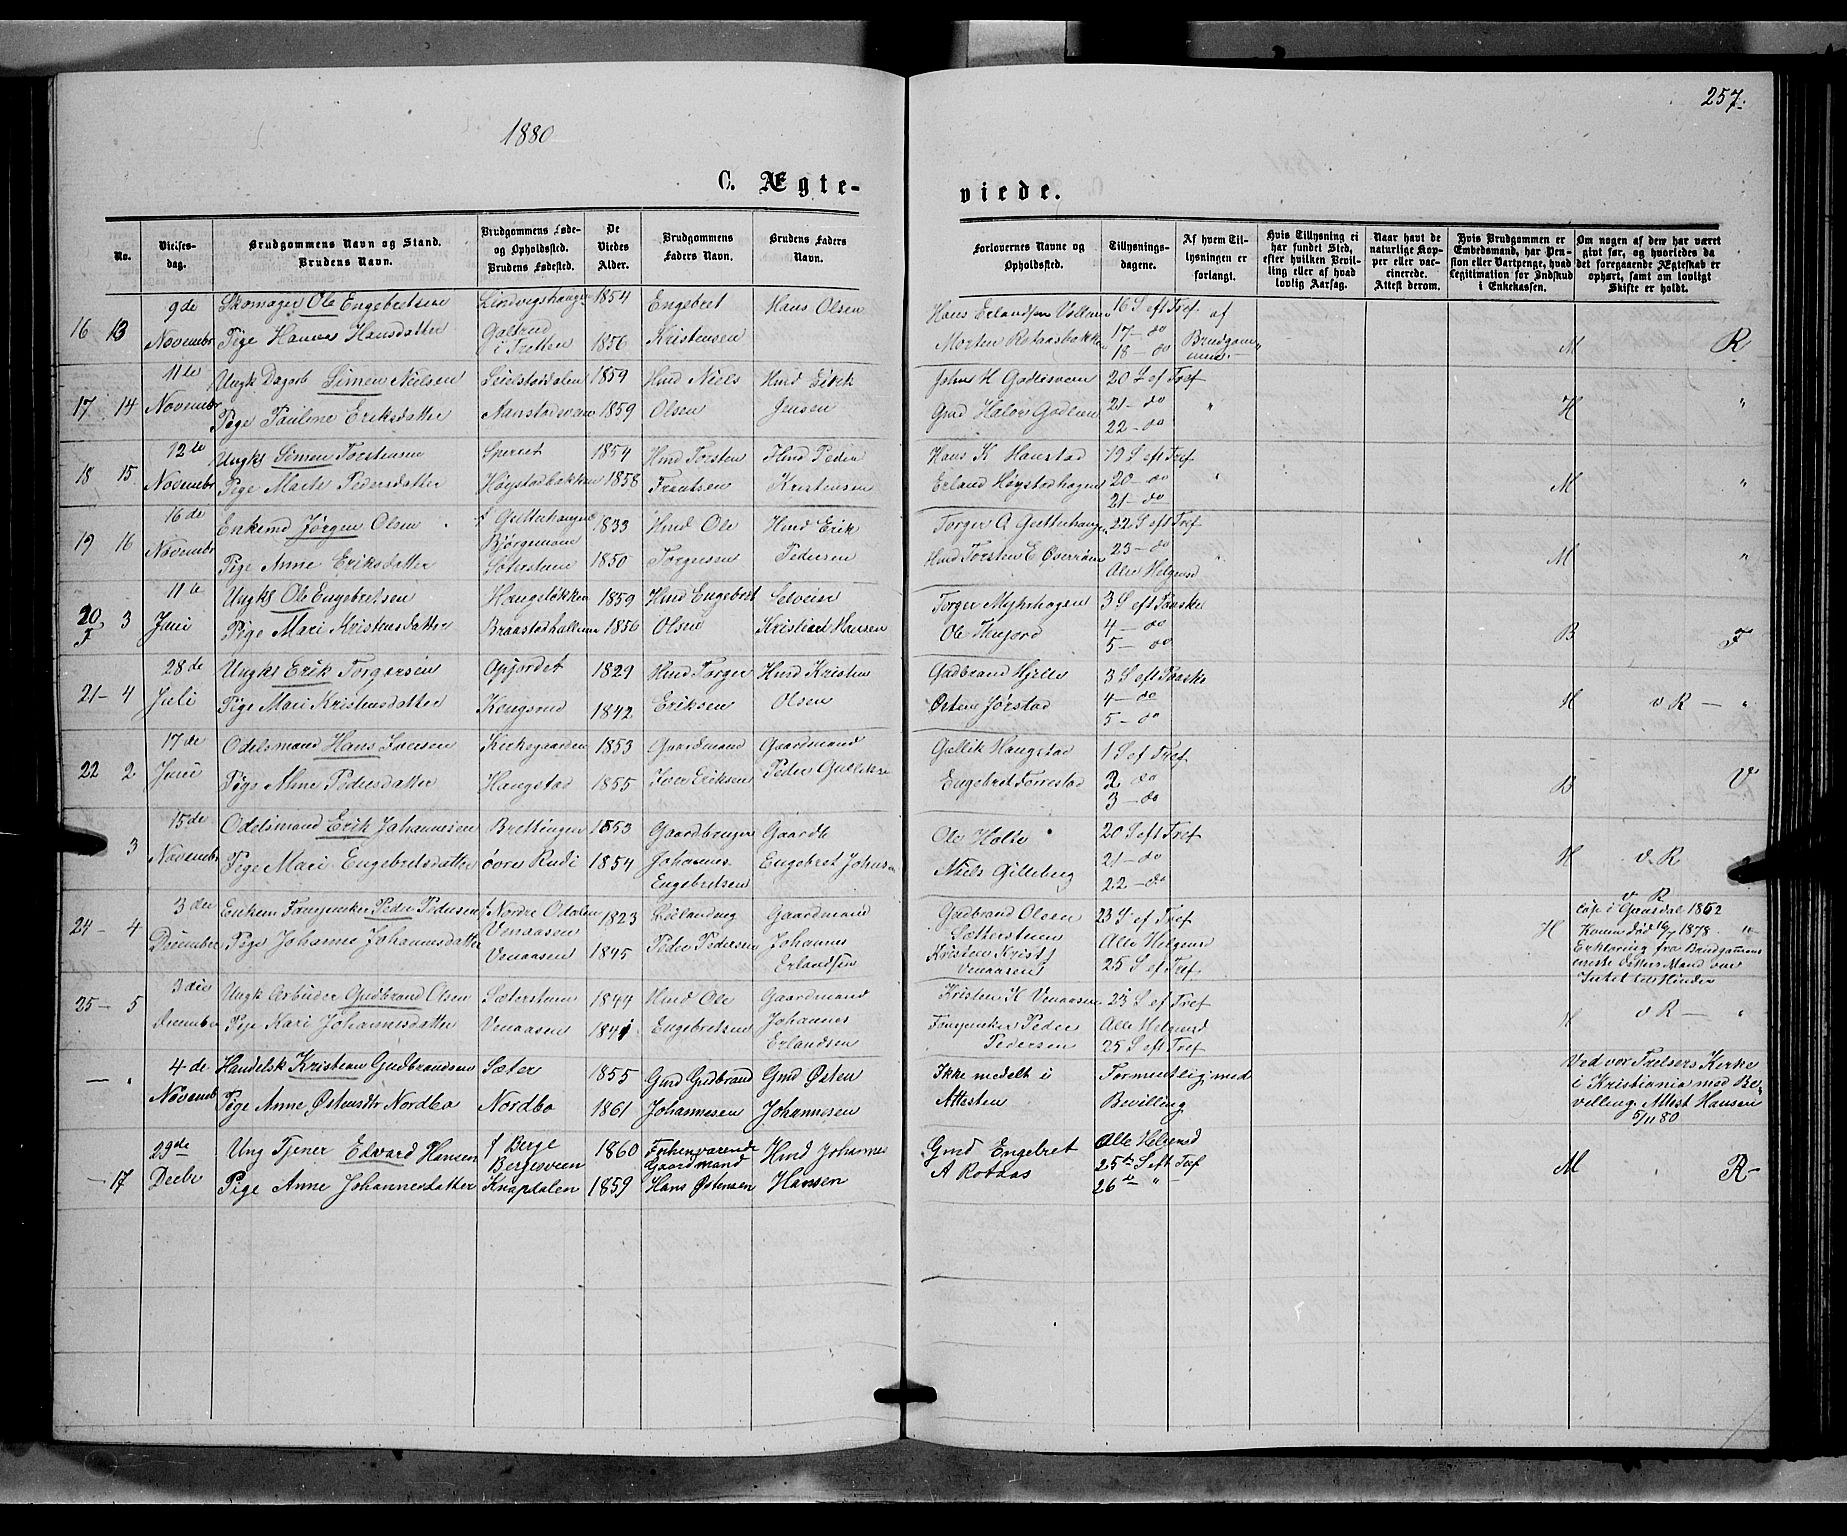 257.
1880
C. Ægte-
viede.
No.
Vielses-
dag.
Brudgommens Navn og Stand.
Brudens Navn.
Brudgommens Føde-
og Opholdssted.
Brudens Fødested.
De
Viedes
Alder.
Brudgommens
Faders Navn.
Brudens Faders
Navn.
Forlovernes Navne og
Opholdssted.
Tillysnings-
dagene.
Af hvem Til-
lysningen er
forlangt.
Hvis Tillysning ei
har fundet Sted,
efter hvilken Bevil-
ling eller af hvad
lovlig Aarsag.
Naar havt de
naturlige Kop-
per eller vac-
cinerede.
Attest derom.
Hvis Brudgommen er
Embedsmand, har Pen-
sion eller Vartpenge, hvad
Legitimation for Indskud
i Enkekassen.
Om nogen af dem har været
gift før, og hvorledes da
det foregaaende Ægteskab er
ophørt, samt om lovligt
Skifte er holdt.
16 13 9de Novembr
Skomager Ole Engebretsen
Pige Hanna Hansdatter
i Tretten
1854
1856
Engebret
Kristensen
Hans Olsen
Hans Erlandsen
Morten Rotaasbakken
16 S eft Tref
17 - do
18 - do
af
Brudgom-
men.
M R
17 14 11te Novembr
Ungk Dagarb Simen Nielsen
Pige Pauline Eriksdatter
1859
1859
Hmd Niels
Olsen
Hmd Erik
Jensen
20 S ef Tref
21 - do
22 - do
H "
18 15 12te Novembr
Ungks Simen Torstensen
Pige Marte Pedersdatter
Høystadbakken
1854
1858
Hmd Torsten
Frantsen
Hmd Peder
Kristensen
Hans K Hanstad
Erland Høystadhagen
19 S eft Tref
20 - do
21 - do
M "
19 16 16de Novembr
Enkemd Jørgen Olsen
Pige Anne Eriksdatter
1833
1850
Hmd Ole
Torgersen
Hmd Erik
Pedersen
Hmd Torsten E
22 S eft Tref
23 - do
Alle Helgensd
M "
20 3 11te Juni
Ungks Ole Engebretsen
Pige Mari Kristensdatter
Haugsløkken
1859
1856
Hmd Engebret
Olsen
Selveier
Kristian Hansen
Torger Myhrhagen
Ole Kinjord
3 S eft Paaske
4 - do
5 - do
B F
21 - 4 28de Juli
Ungks Erik Torgersen
Pige Mari Kristensdatter
Opjordet
1829
1842
Hmd Torger
Eriksen
Hmd Kristen
Olsen
Gudbrand Hjelle
Østen Jørstad
3 S eft Paaske
4 - do
5 - do
H v R — "
22 2 17de Juni
Odelsmand Hans Iversen
Pige Anne Pedersdatter
Kirkegaarden
Haugstad
1853
1855
Gaardmand
Iver Eriksen
Gaardmand
Peder Gulliks.
Gullik Haugstad
Engebret Forrestad
1 S ef Tref
2 do
3 - do
B V
3 15de Novembr
Odelsmand Erik Johannesen
Pige Mari Engebretsdatter
Brettingen
øvre Rudi
1853
1854
Gaardbruger
Johannes
Engebretsen
Gaardb
Engebret Johnsen
Ole Holte
Niels Gilleberg
20 S eft Tref
21 - do
22 - do
H v. R
24 - 4 3die December
Enkem Peder Pedersen
Pige Johanne Johannesdatter
f Nordre Odalen
Venaasen
Venaasen
1823
1845
Peder Pedersen
Gaardmand
Johannes
Erlandsen
Gudbrand Olsen
Sætersteien
Kristen Krist
Venaasen
23 S. ef Tref
Alle Helgensd
25 S ef Tref
H v. R
i Gausdal 1862
Konen død 16/7 1878. "
Erklæring fra Brudgommens
Intet til Hinder
25 - 5 3die December
Ungk Arbeider Gudbrand Olsen
Pige Kari Johannesdatter
Venaasen
1844
1841
Hmd Ole
Engebretsen
Gaardmand
Johannes
Erlandsen
Kristen K Venaasen
Peder
Pedersen
23 S ef Tref
Alle Helgensd
25 S eft Tref
H v R — "
— " 4de Novemb
Handelsk Kristian Gudbrandsen
Pige Anne Østensdtr Nordbo
Sæter
Nordbo
1855
1861
Gmd Gudbrand
Johannesen
Gmd Østen
Johannesen
Ikke medelt i
Attesten
Formentlig med
Bevilling
Ved vor Frelsers Kirke
i Kristiania med Be-
villing. Attest Hansen
5/11 80
— 17 29de Decbr
Ung Tjener Edvard Hansen
Pige Anne Johannesdatter
f Berge
Bergesveen
Knapdalen
1860
1859
Gaardmand
Hans Østensen
Hmd Johannes
Hansen
Gmd Engebret
A Rotaas
Alle Helgensd
25de S eft Tref
26de " —
M R -